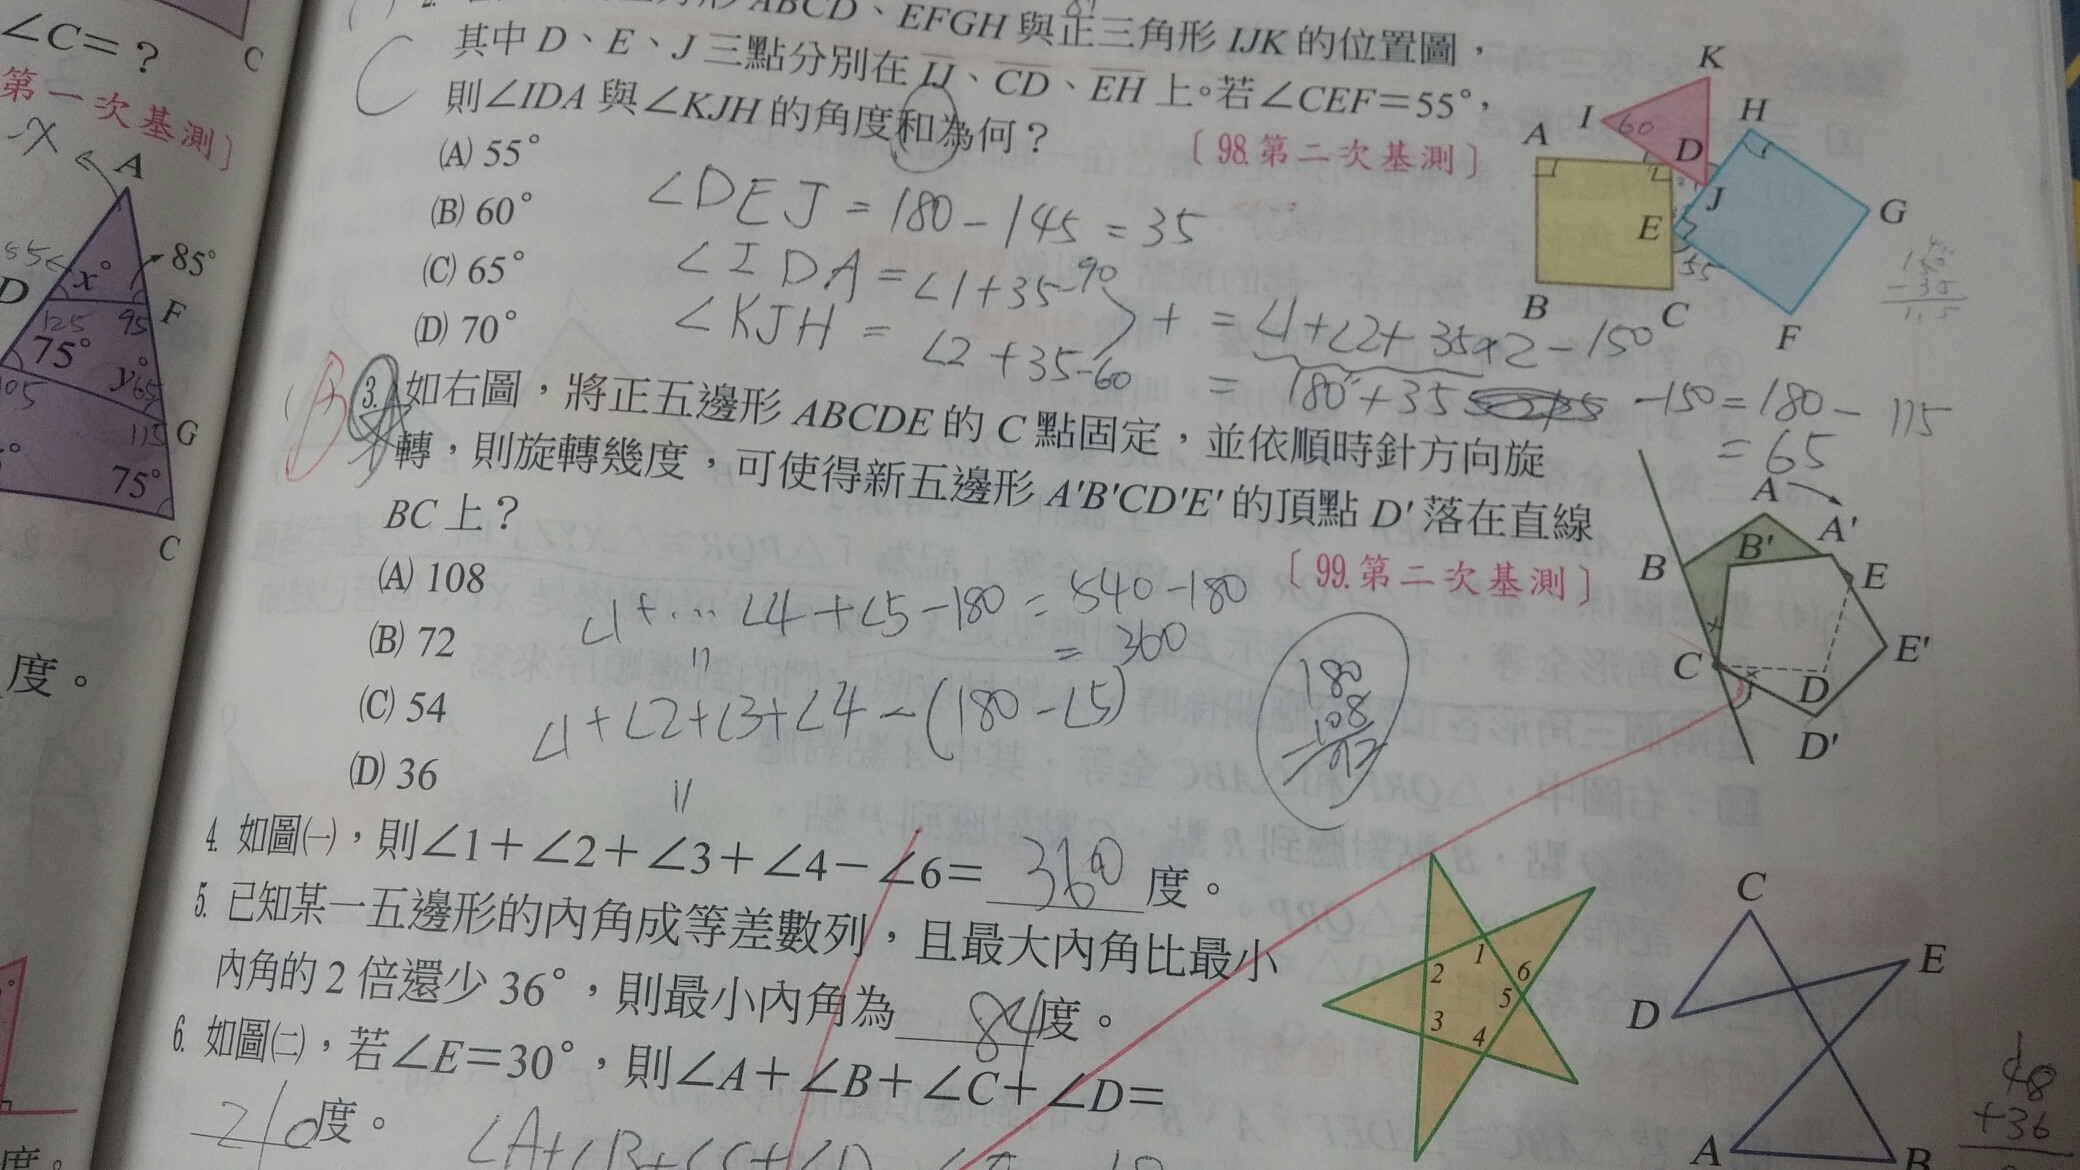 ∠C=?
第一次基測〕
C
-x
A
85°
55
D
x°
F
125
95
75°
y°
65
105
115
G
75°
C
度。
ABCD、EFGH與正三角形 IJK 的位置圖,
其中 D、E、J 三點分別在 IJ、CD、EH 上。若∠CEF=55°,
則∠IDA 與∠KJH 的角度和為何?
〔98.第二次基測〕
C
(A) 55°
(B) 60°
(C) 65°
(D) 70°
∠DEJ = 180-145 = 35
∠IDA = ∠1+35-90
∠KJH = ∠2+35-60
+ = ∠1+∠2+35×2-150
= 180+35 -150 = 180-115
= 65
K
I
60
H
A
D
J
G
E
55
B
C
F
B
3. 如右圖,將正五邊形 ABCDE 的 C 點固定,並依順時針方向旋
轉,則旋轉幾度,可使得新五邊形 A'B'CD'E' 的頂點 D' 落在直線
BC 上?
〔99.第二次基測〕
(A) 108
(B) 72
(C) 54
(D) 36
∠1+…∠4+∠5-180 = 540-180
= 360
∠1+∠2+∠3+∠4-(180-∠5)
180
108
A
A'
B
B'
E
C
E'
D
D'
4. 如圖㈠,則∠1+∠2+∠3+∠4-∠6= 360 度。
5. 已知某一五邊形的內角成等差數列,且最大內角比最小
內角的 2 倍還少 36°,則最小內角為 84 度。
6. 如圖㈡,若∠E=30°,則∠A+∠B+∠C+∠D=
210 度。
∠A+∠B+∠C+∠D
1
2
6
5
3
4
C
E
D
A
B
48
+36
度。